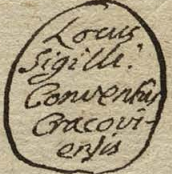 Locus
Sigilli.
Conventus
Cracovi-
ensis